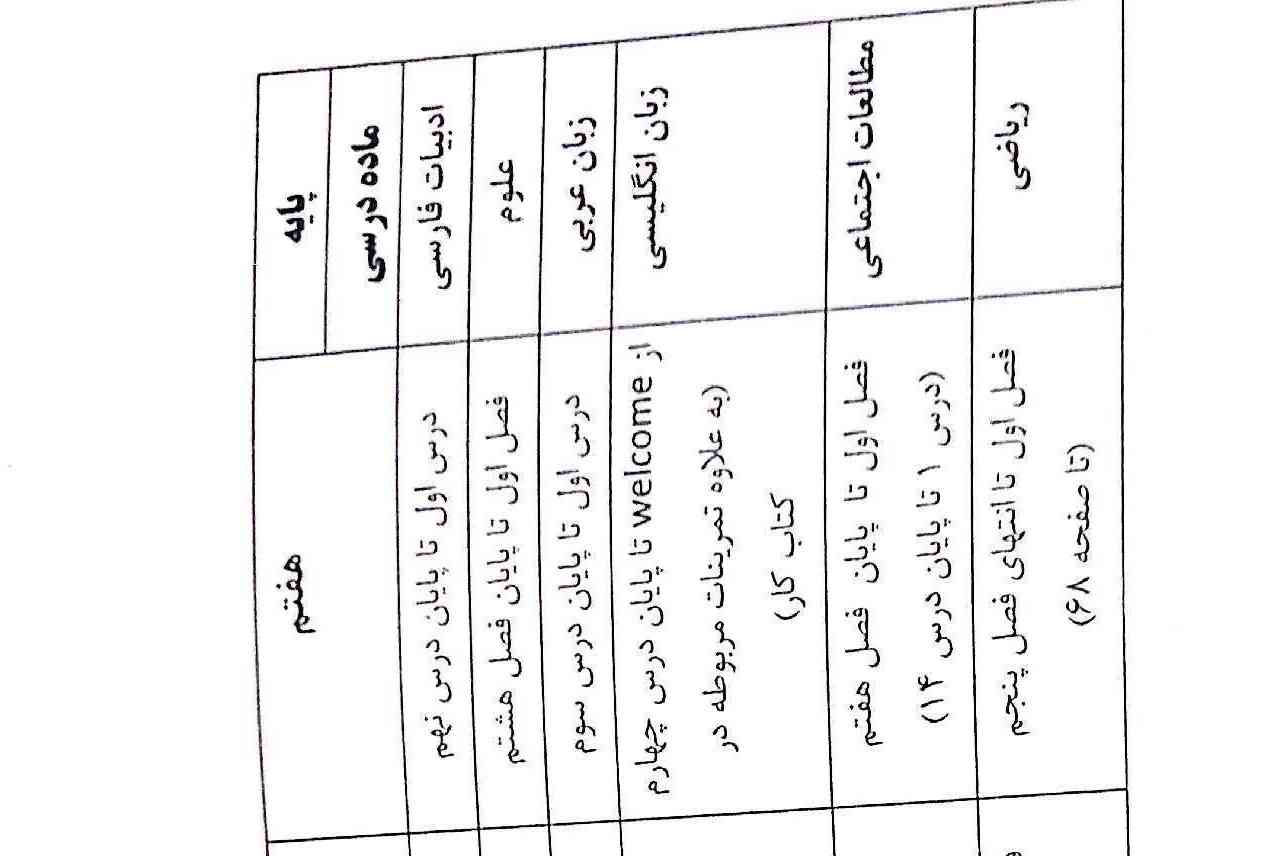 پایه
هفتم
ماده درسی
ادبیات فارسی
درس اول تا پایان درس نهم
علوم
فصل اول تا پایان فصل هشتم
زبان عربی
درس اول تا پایان درس سوم
زبان انگلیسی
از welcome تا پایان درس چهارم
(به علاوه تمرینات مربوطه در
کتاب کار)
مطالعات اجتماعی
فصل اول تا پایان فصل هفتم
(درس ۱ تا پایان درس ۱۴)
ریاضی
فصل اول تا انتهای فصل پنجم
(تا صفحه ۶۸)